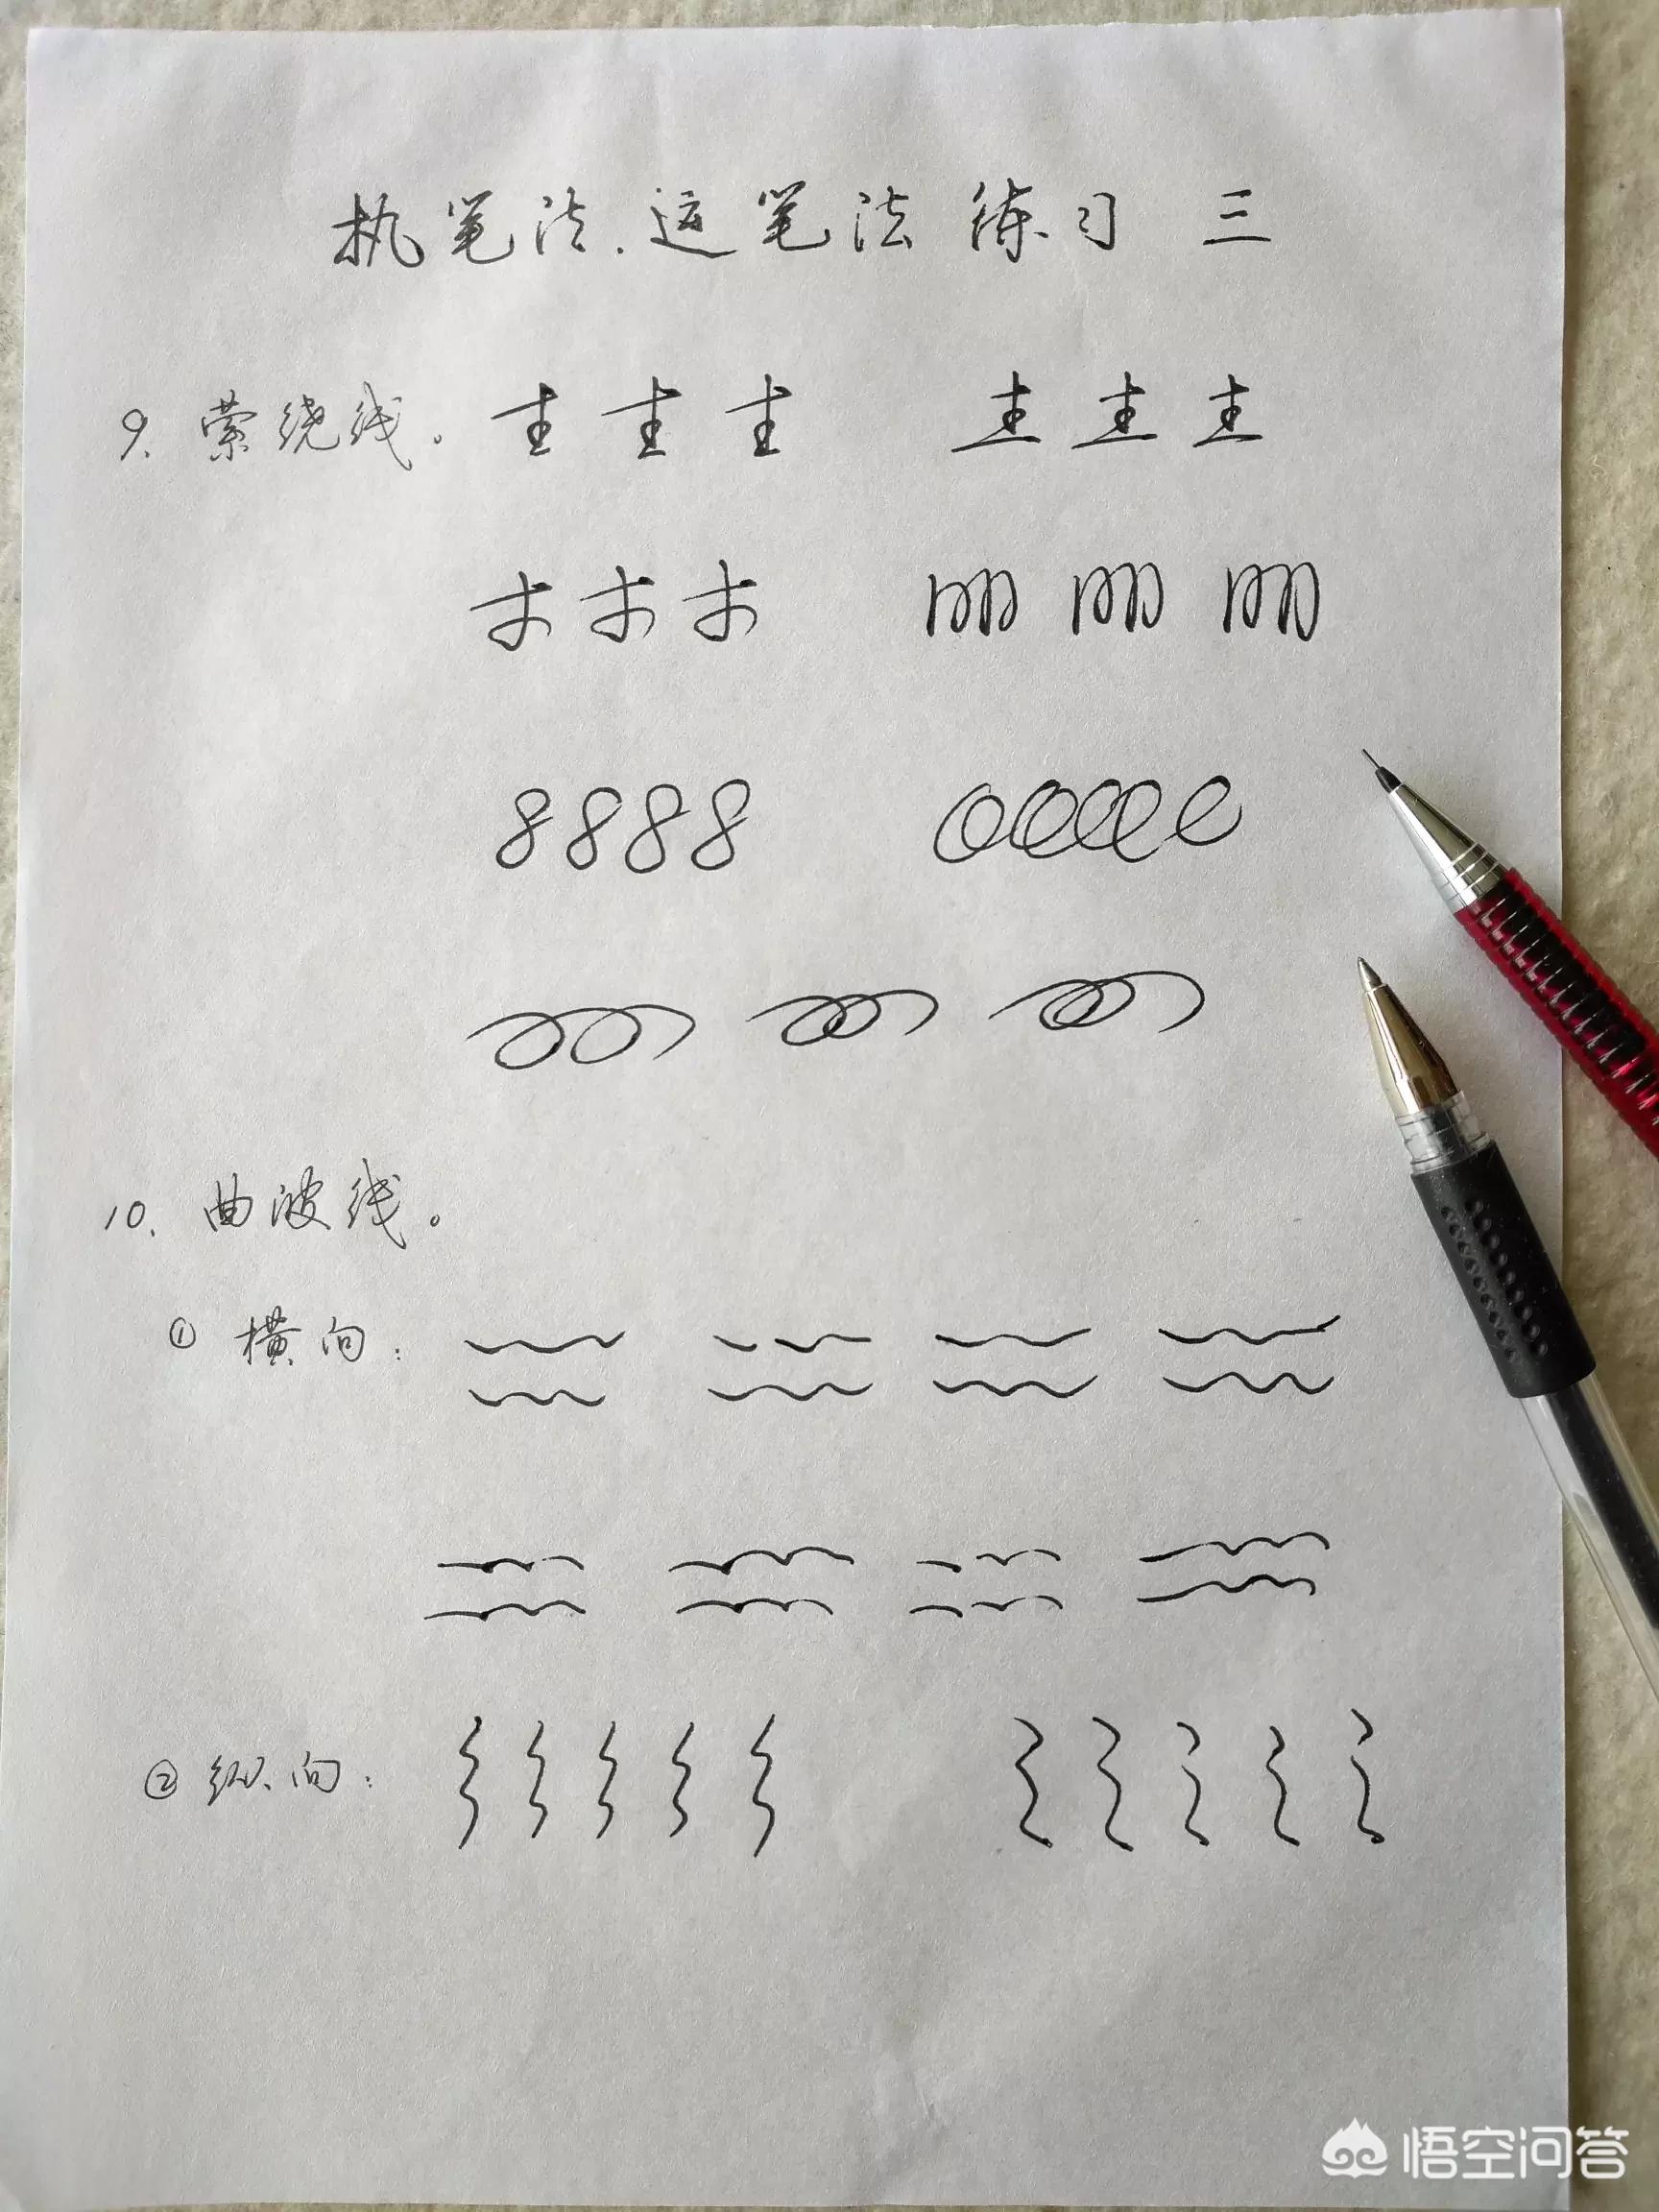 执笔法.运笔法练习 三
9. 萦绕线。
8888
10. 曲波线。
① 横向:
② 纵向:
悟空问答